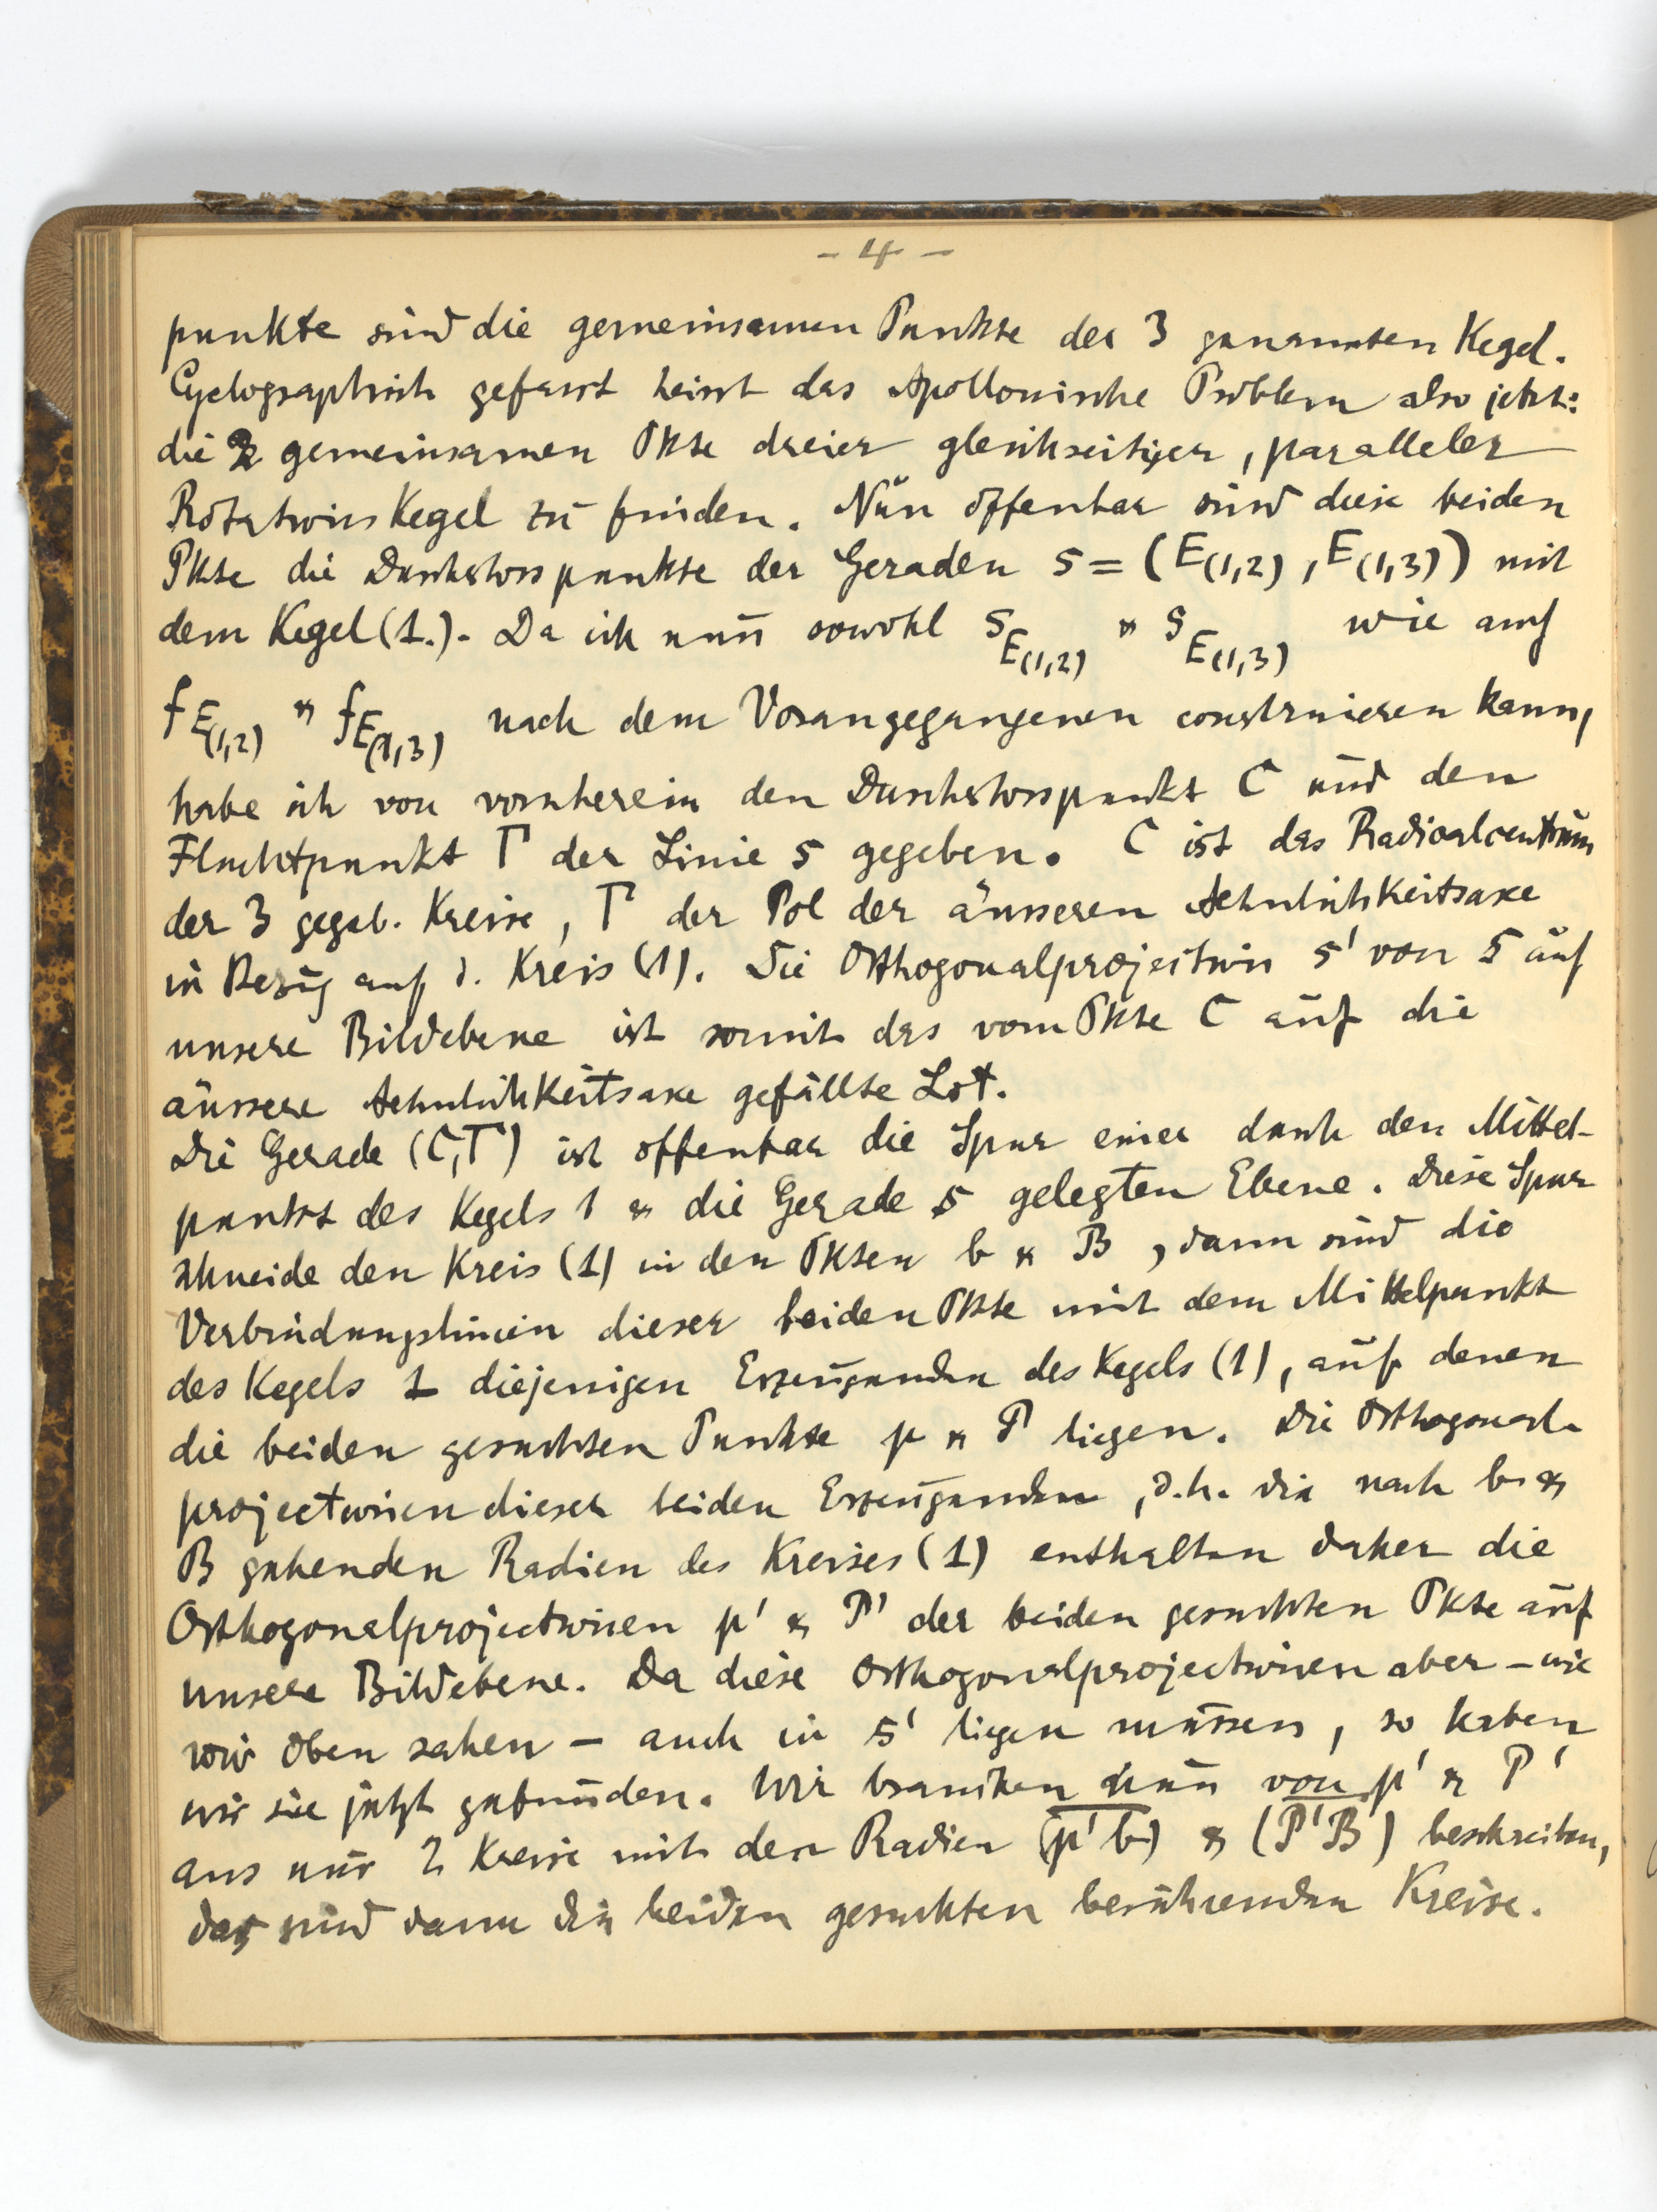 - 4 -
punkte sind die gemeinsamen Punkte der 3 genannten Kegel.
Cyclographisch gefasst heisst das Apollonische Problem also jetzt:
die 2 gemeinsamen Pkte dreier gleichseitiger, paralleler
RotationsKegel zu finden. Nun offenbar sind diese beiden
Pkte die Durchstosspunkte der Geraden s = (E(1,2), E(1,3)) mit
dem Kegel (1.). Da ich nun sowohl s_E(1,2) u s_E(1,3) wie auch
f_E(1,2) u f_E(1,3) nach dem Vorangegangenen construieren kann,
habe ich von vornherein den Durchstosspunkt C und den
Fluchtpunkt Γ der Linie s gegeben. C ist das Radicalcentrum
der 3 gegeb. Kreise, Γ der Pol der äusseren Aehnlichkeitsaxe
in Bezug auf d. Kreis (1). Die Orthogonalprojection s' von s auf
unsere Bildebene ist somit das vom Pkte C auf die
äussere Aehnlichkeitsaxe gefällte Lot.
Die Gerade (C,Γ) ist offenbar die Spur einer durch den Mittel-
punkt des Kegels 1 u die Gerade s gelegten Ebene. Diese Spur
schneide den Kreis (1) in den Pkten b u B, dann sind die
Verbindungslinien dieser beiden Pkte mit dem Mittelpunkt
des Kegels 1 diejenigen Erzeugenden des Kegels (1), auf denen
die beiden gesuchten Punkte p u P liegen. Die Orthogonal-
projectionen dieser beiden Erzeugenden, d.h. die nach b u
B gehenden Radien des Kreises (1) enthalten daher die
Orthogonalprojectionen p' u P' der beiden gesuchten Pkte auf
unsere Bildebene. Da diese Orthogonalprojectionen aber – wie
wir oben sahen – auch in s' liegen müssen, so haben
wir sie jetzt gefunden. Wir brauchen nun von p' u P'
aus nur 2 Kreise mit den Radien (p'b) u (P'B) beschreiben,
das sind dann die beiden gesuchten berührenden Kreise.